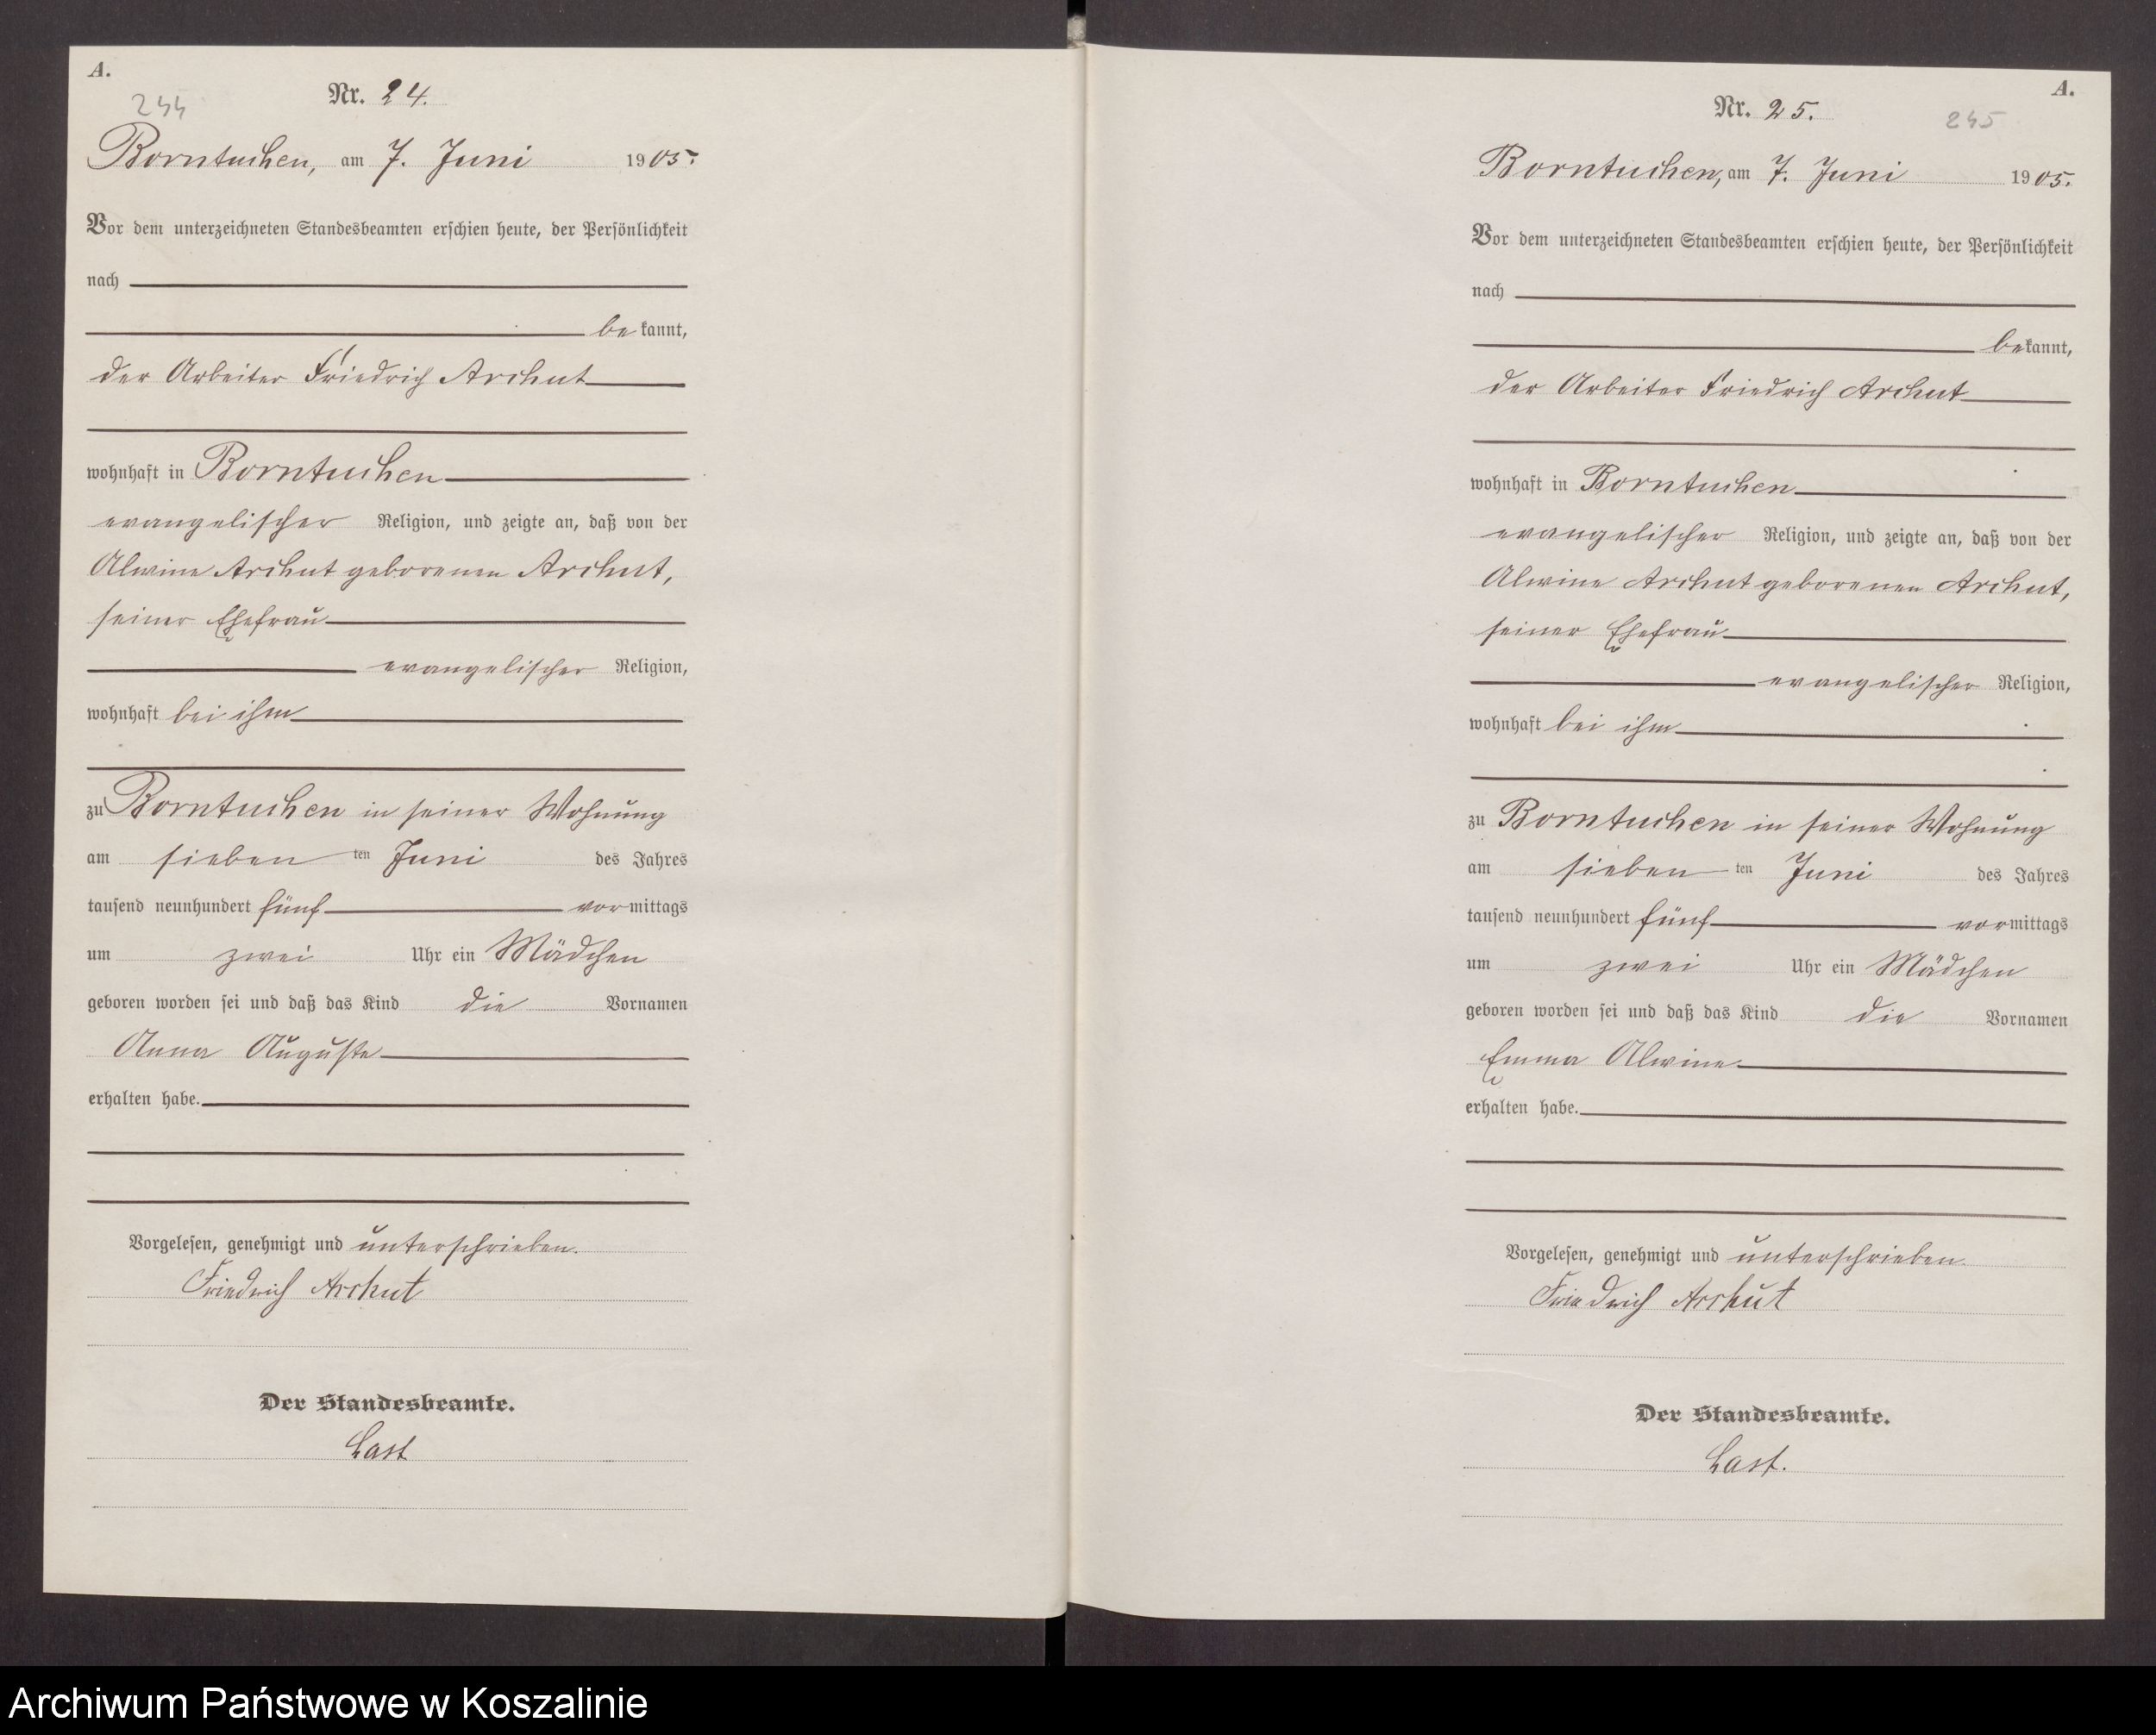 A.
244
Nr. 24.
Borntuchen, am 7. Juni 1905.
Vor dem unterzeichneten Standesbeamten erschien heute, der Persönlichkeit
nach
bekannt,
der Arbeiter Friedrich Archut
wohnhaft in Borntuchen
evangelischer Religion, und zeigte an, daß von der
Alwine Archut geborenen Archut,
seiner Ehefrau
evangelischer Religion,
wohnhaft bei ihm
zu Borntuchen in seiner Wohnung
am sieben ten Juni des Jahres
tausend neunhundert fünf vormittags
um zwei Uhr ein Mädchen
geboren worden sei und daß das Kind die Vornamen
Anna Auguste
erhalten habe.
Vorgelesen, genehmigt und unterschrieben.
Friedrich Archut
Der Standesbeamte.
Last
A.
Nr. 25.
245
Borntuchen, am 7. Juni 1905.
Vor dem unterzeichneten Standesbeamten erschien heute, der Persönlichkeit
nach
bekannt,
der Arbeiter Friedrich Archut
wohnhaft in Borntuchen
evangelischer Religion, und zeigte an, daß von der
Alwine Archut geborenen Archut,
seiner Ehefrau
evangelischer Religion,
wohnhaft bei ihm
zu Borntuchen in seiner Wohnung
am sieben ten Juni des Jahres
tausend neunhundert fünf vormittags
um zwei Uhr ein Mädchen
geboren worden sei und daß das Kind die Vornamen
Emma Alwine
erhalten habe.
Vorgelesen, genehmigt und unterschrieben.
Friedrich Archut
Der Standesbeamte.
Last.
Archiwum Państwowe w Koszalinie